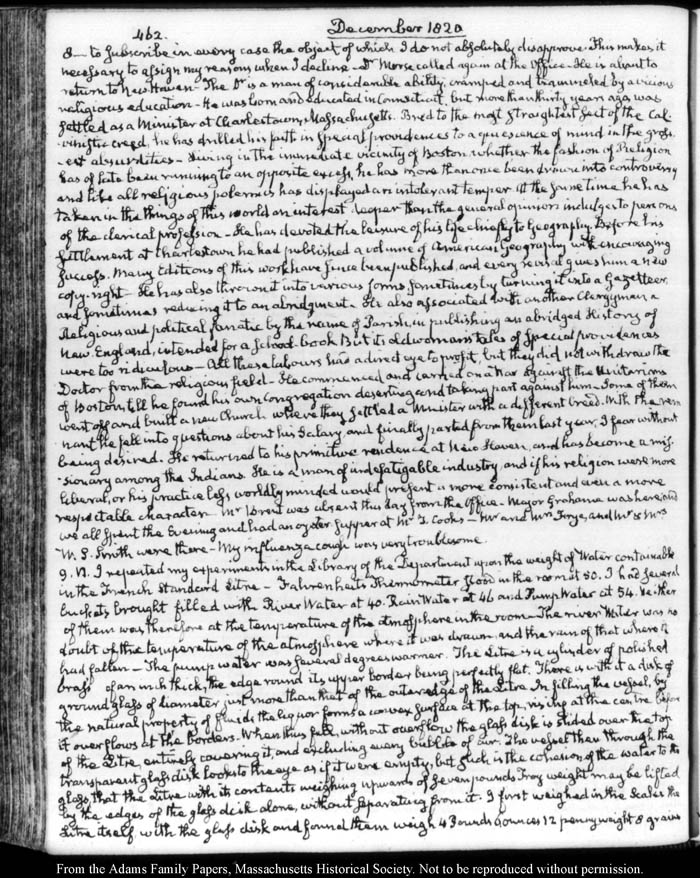 462.
December 1820
8— to subscribe in every case the object of which I do not absolutely disapprove. This makes it
necessary to assign my reasons when I decline— Dr. Morse called again at the Office— He is about to
return to New Haven— The Dr. is a man of considerable ability cramped and trammeled by a vicious
religious education— He was born and educated in Connecticut, but more than thirty years ago was
settled as a Minister at Charlestown, Massachusetts. Bred to the most straightest sect of the Cal-
vinistic creed, he has drilled his faith in special providences to acquiescence of mind in the gross-
est absurdities— Living in the immediate vicinity of Boston, whether the fashion of Religion
has of late been running to an opposite excess, he has more than once been drawn into controversy
and like all religious polemics has displayed an intolerant temper. At the same time he has
taken in the things of this world an interest deeper than the general opinion indulges to persons
of the clerical profession— He has devoted the leisure of his life chiefly to Geography. Before his
settlement at Charlestown he had published a volume of American Geography with encouraging
success. Many Editions of this work have since been published, and every revisal gives him a new
copy-right— He has also thrown it into various forms, sometimes by turning it into a Gazetteer,
and sometimes reducing it to an abridgment— He also associated with another Clergyman, a
Religious and political fanatic by the name of Parish, in publishing an abridged History of
New England, intended for a School-book. But its old woman's tales of special providences
were too ridiculous— All these labours had a direct eye to profit, but they did not withdraw the
Doctor from the religious field— He commenced and carried on a War against the Unitarians
of Boston, till he found his own congregation deserting and taking part against him— Some of them
went off and built a new Church where they settled a Minister with a different creed. With the rem-
nant he fell into questions about his Salary and finally parted from them last year, I fear without
being desired. He returned to his primitive residence at New Haven, and has become a mis-
sionary among the Indians. He is a man of indefatigable industry, and if his religion were more
liberal, or his practice less worldly minded would present a more consistent and even a more
respectable character— Mr Brent was absent this day from the Office— Major Graham was here, and
we all spent the Evening and had an oyster supper at Mr T. Cook's— Mr and Mrs Frye, and Mr & Mrs
W. S. Smith were there— My influenza cough was very troublesome.
9. VI. I repeated my experiments in the Library of the Department upon the weight of Water containable
in the French Standard Litre— Fahrenheit's Thermometer stood in the room at 50. I had several
buckets brought filled with River Water at 40. Rain Water at 46 and Pump Water at 54. Neither
of them was therefore at the temperature of the atmosphere in the room— The river Water was no
doubt of the temperature of the atmosphere where it was drawn and the rain of that where it
had fallen— The pump water was several degrees warmer. The Litre is a cylinder of polished
brass of an inch thick, the edge round its upper border being perfectly flat. There is with it a disk of
ground glass of diameter just more than that of the outer edge of the Litre. In filling the vessel, by
the natural property of fluids the liquor forms a convex surface at the top, rising at the centre before
it overflows at the borders. When thus full, without overflow the glass disk is slided over the top
of the Litre, entirely covering it, and excluding every bubble of air. The vessel then through the
transparent glass disk looks to the eye as if it were empty, but such is the cohesion of the water to the
glass, that the Litre with its contents weighing upwards of seven pounds Troy weight may be lifted
by the edges of the glass disk alone, without separating from it. I first weighed in the Scales the
Litre itself with the glass disk and found them weigh 4 Pounds ounces 12 pennyweight 8 grains
From the Adams Family Papers, Massachusetts Historical Society. Not to be reproduced without permission.